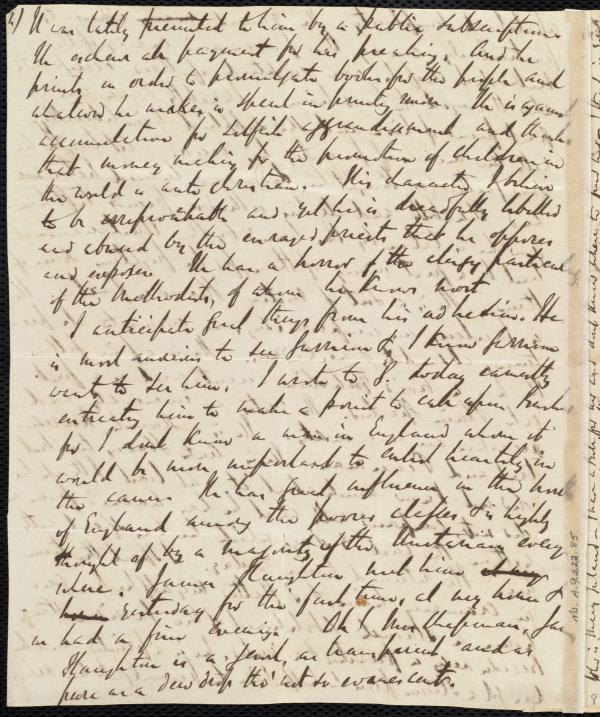 4) It was lately presented to him by a public subscription.
He eschews all payment for his preaching. And he
prints in order to promulgate books for the people and
whatever he makes is spent in printing more. He is against
accumulation for selfish aggrandizement and thinks
that money making for the promotion of children in
the world is anti christian. His character I believe
to be irreproachable and yet he is dreadfully libelled
and abused by the enraged priests that he opposes
and exposes. He has a horror of the clergy particu
of the Methodists, of whom he knows most.
I anticipate great things from his adhesion. He
is most anxious to see Garrison & I know Garrison
wants to see him. I wrote to G. today earnestly
entreating him to make a point to call upon Barker
for I dont know a man in England whom it
would be more important to enlist heartily in
the cause. He has great influence in the north
of England among the poorer classes & is highly
thought of by a majority of the Unitarians every
where. James Haughton met him
yesterday for the first time, at my house &
we had a fine evening. Oh! Mrs Chapman, Jas
Haughton is a jewel, as transparent and as
pure as a dew drop tho' not so evanescent.
Ms. A.9.2.22.85